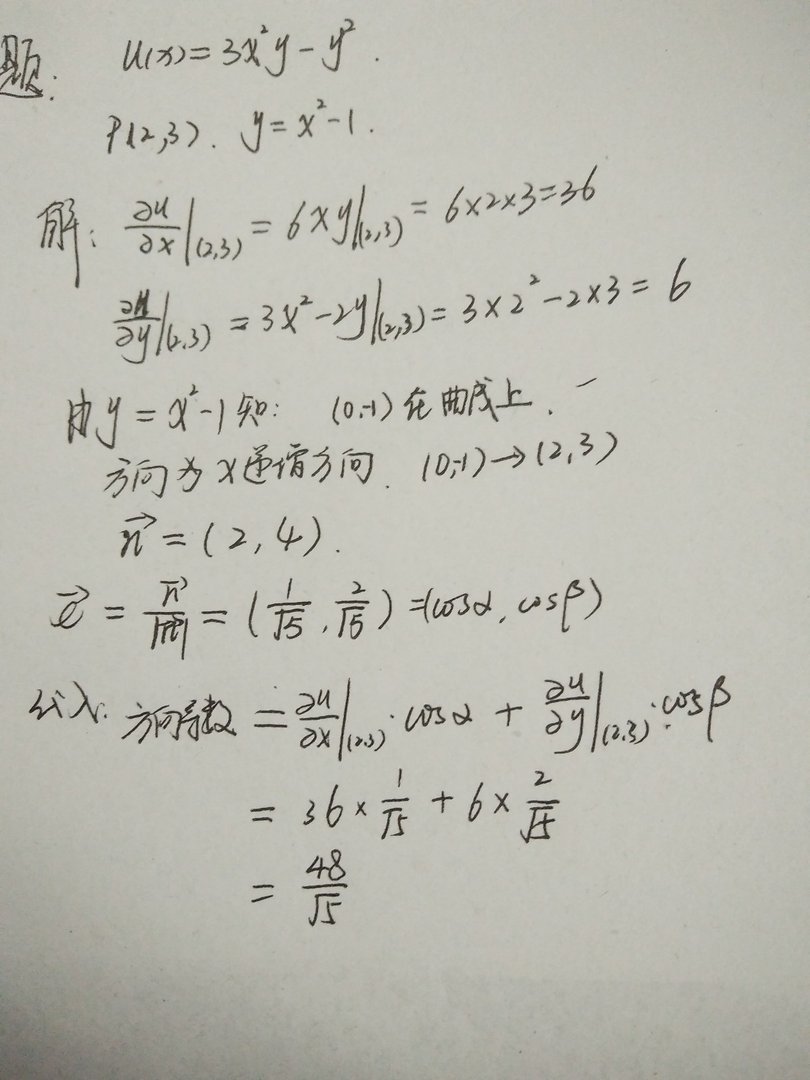 题: U(x)=3x²y-y².
P(2,3). y=x²-1.
解: ∂u/∂x|(2,3) = 6xy|(2,3) = 6×2×3=36
∂u/∂y|(2,3) = 3x²-2y|(2,3) = 3×2²-2×3=6
由y=x²-1知: (0,-1)在曲线上.
方向为x递增方向. (0,-1)→(2,3)
n⃗=(2,4).
e⃗ = n⃗/|n⃗| = (1/√5, 2/√5) =(cosα, cosβ)
代入: 方向导数 = ∂u/∂x|(2,3)·cosα + ∂u/∂y|(2,3)·cosβ
= 36×1/√5 + 6×2/√5
= 48/√5